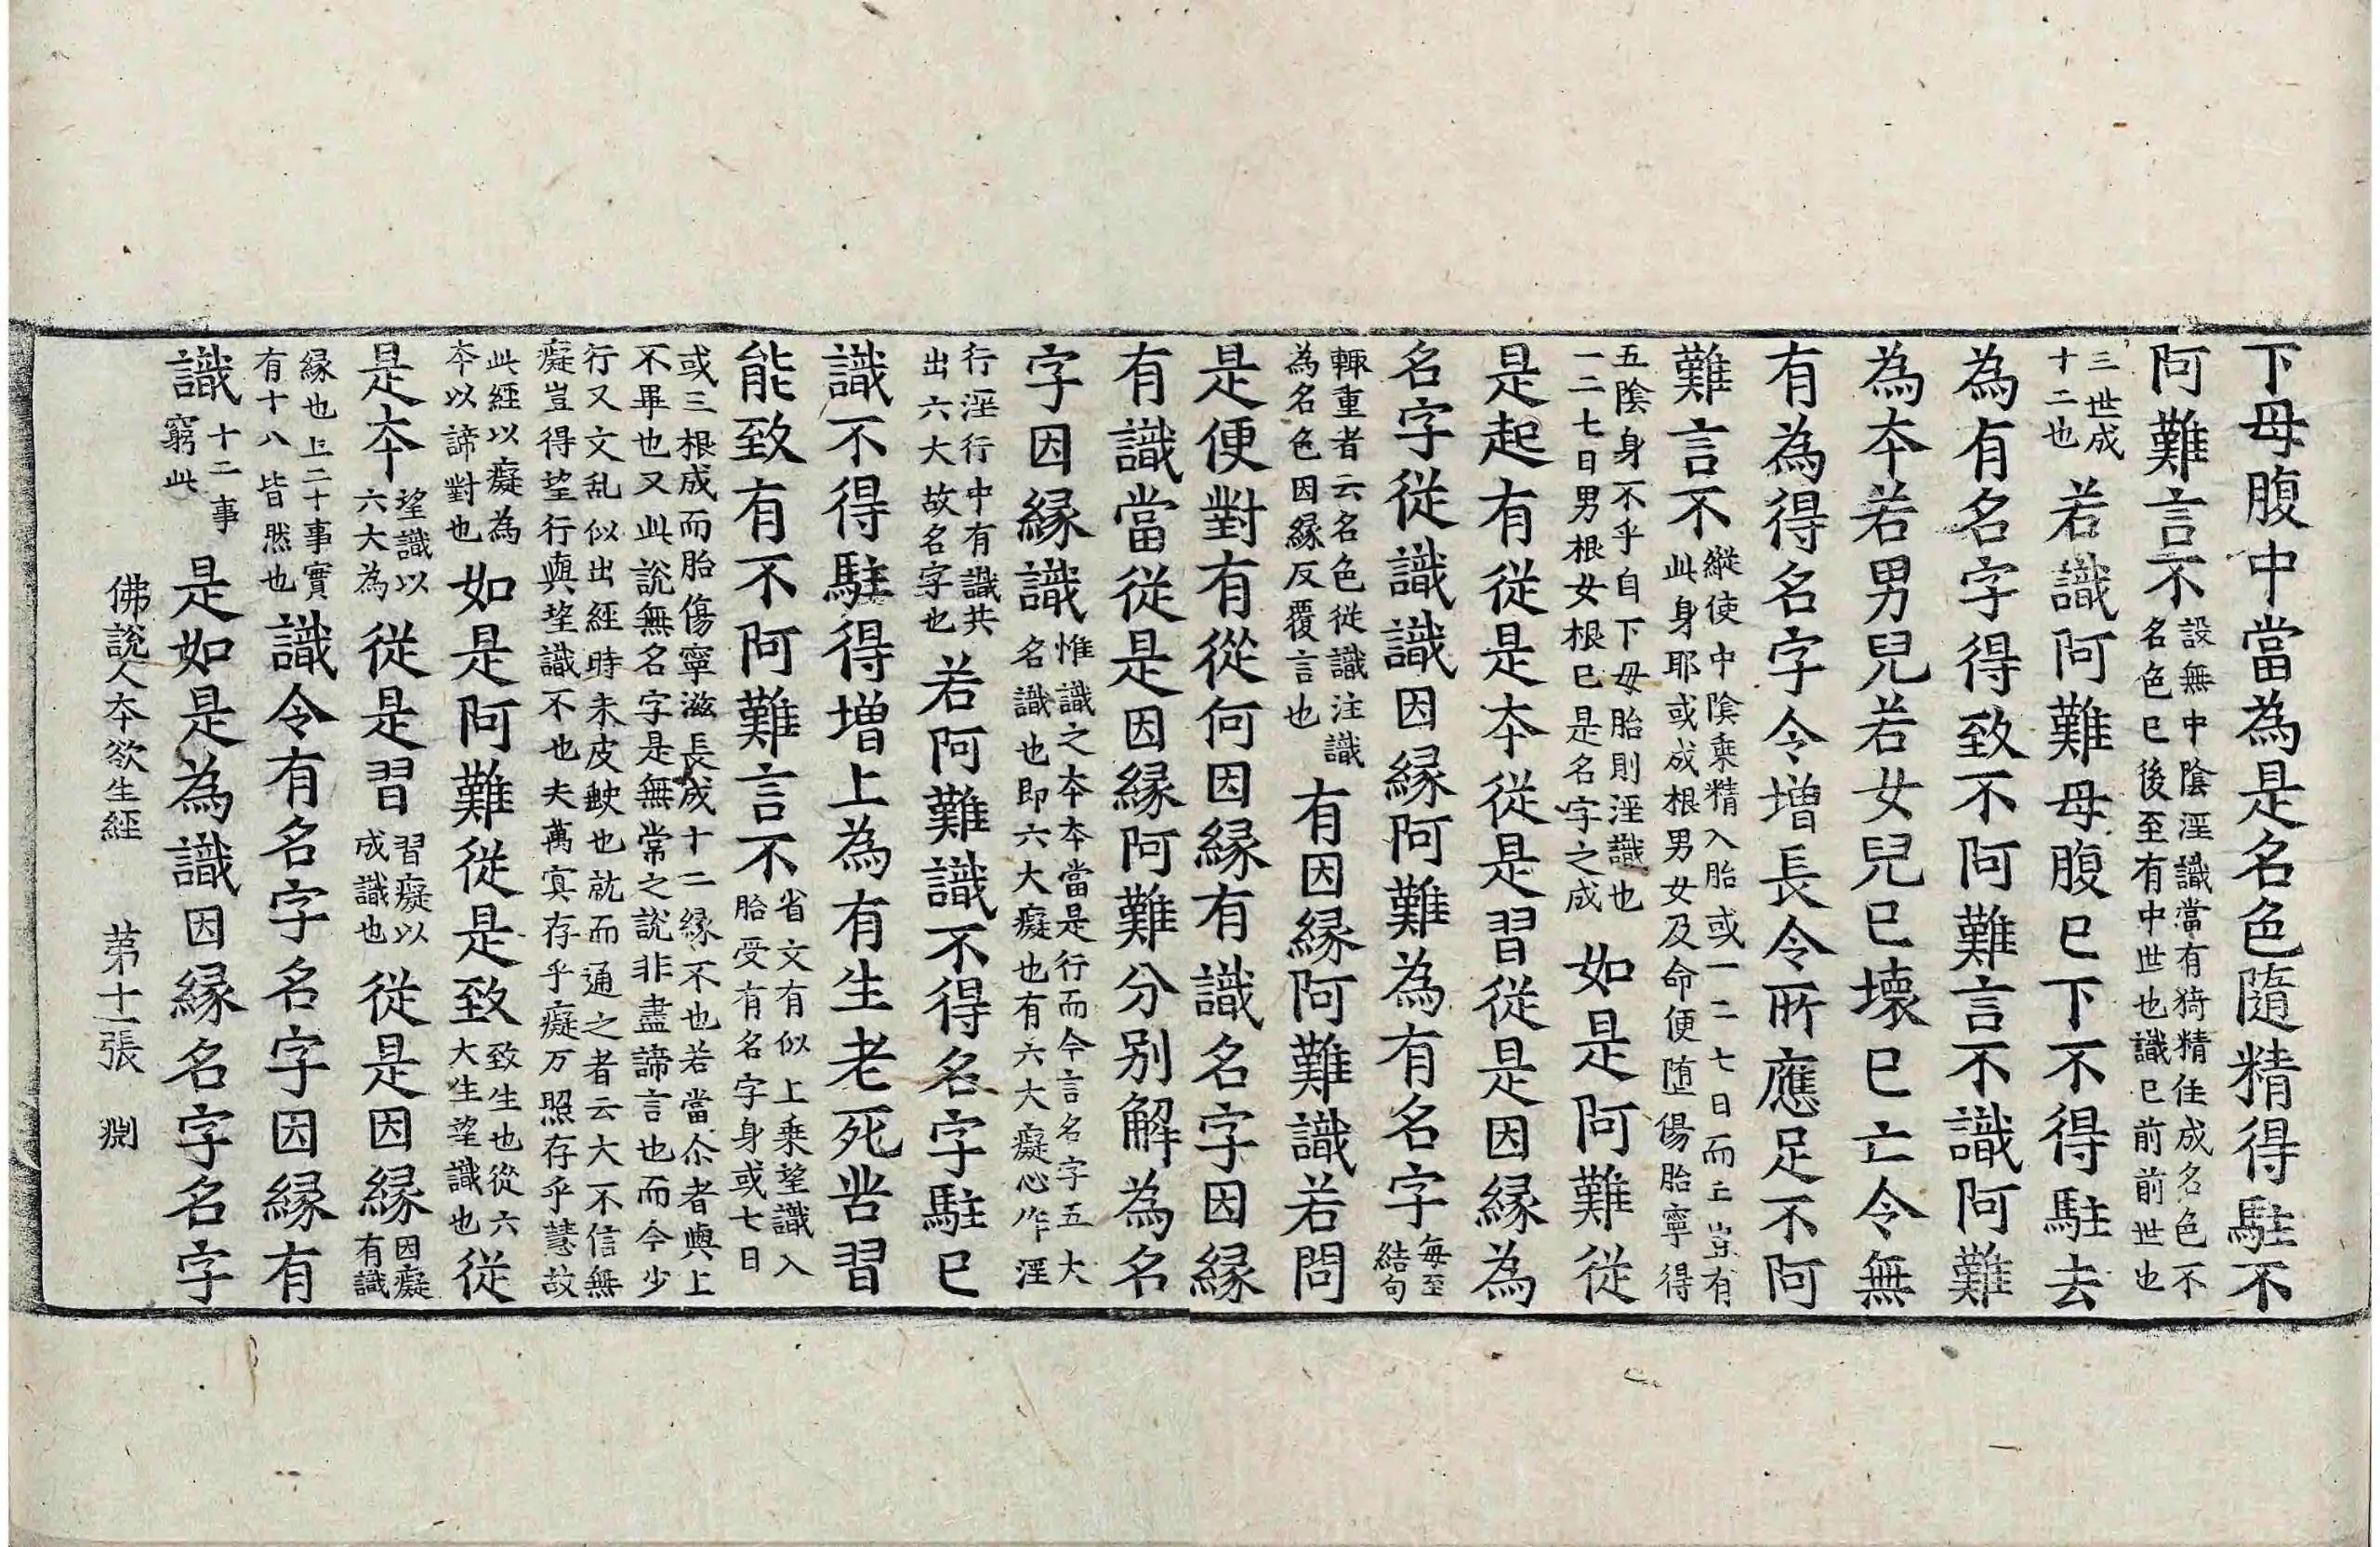 下母腹中當為是名色隨精得駐不
阿難言不設無中陰淫識當有猗精住成名色不名色已後至有中世也識已前前世也
三世成十二也若識阿難母腹已下不得駐去
為有名字得致不阿難言不識阿難
為本若男兒若女兒已壞已亡令無
有為得名字令增長令所應足不阿
難言不縱使中陰乘精入胎或一二七日而上豈有此身耶或成根男女及命便墮傷胎寧得
五陰身不乎自下母胎則淫識也一二七日男根女根已是名字之成如是阿難從
是起有從是本從是習從是因緣為
名字從識識因緣阿難為有名字每至結句
輙重者云名色從識注識為名色因緣反覆言也有因緣阿難識若問
是便對有從何因緣有識名字因緣
有識當從是因緣阿難分別解為名
字因緣識惟識之本本當是行而今言名字五大名識也即六大癡也有六大癡心作淫
行淫行中有識共出六大故名字也若阿難識不得名字駐已
識不得駐得增上為有生老死苦習
能致有不阿難言不省文有似上乘望識入胎受有名字身或七日
或三根成而胎傷寧滋長成十二緣不也若當尒者與上不畢也又此說無名字是無常之說非盡諦言也而今少
行又文乱似出經時未皮𫆀也就而通之者云大不信無癡豈得望行與望識不也夫萬寘存乎癡万照存乎慧故
此經以癡為本以諦對也如是阿難從是致致生也從六大生望識也從
是本望識以六大為從是習習癡以成識也從是因緣因癡有識
緣也上二十事實有十八皆然也識令有名字名字因緣有
識十二事窮此是如是為識因緣名字名字
佛說人本欲生經　第十一張　淵